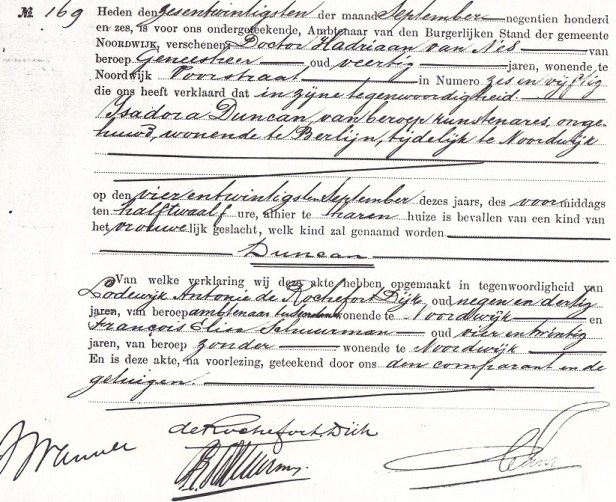 № 169 Heden den zesentwintigsten der maand September negentien honderd
en zes, is voor ons ondergeteekende, Ambtenaar van den Burgerlijken Stand der gemeente
NOORDWIJK, verschenen Doctor Hadriaan van Nes van
beroep Geneesheer oud veertig jaren, wonende te
Noordwijk Voorstraat in Numero zes en vijftig
die ons heeft verklaard dat in zijne tegenwoordigheid
Isadora Duncan, van beroep kunstenares, onge-
huwd, wonende te Berlijn, tijdelijk te Noordwijk
op den vier entwintigsten September dezes jaars, des voormiddags
ten half twaalf ure, alhier te haren huize is bevallen van een kind van
het vrouwelijk geslacht, welk kind zal genaamd worden
Duncan
Van welke verklaring wij deze akte hebben opgemaakt in tegenwoordigheid van
Lodewijk Antonie de Rochefort Dijk, oud negen en dertig
jaren, van beroep ambtenaar ter secretarie wonende te Noordwijk en
François Elisa Schuurman oud vier entwintig
jaren, van beroep zonder wonende te Noordwijk
En is deze akte, na voorlezing, geteekend door ons den comparant en de
getuigen.
de Rochefort Dijk